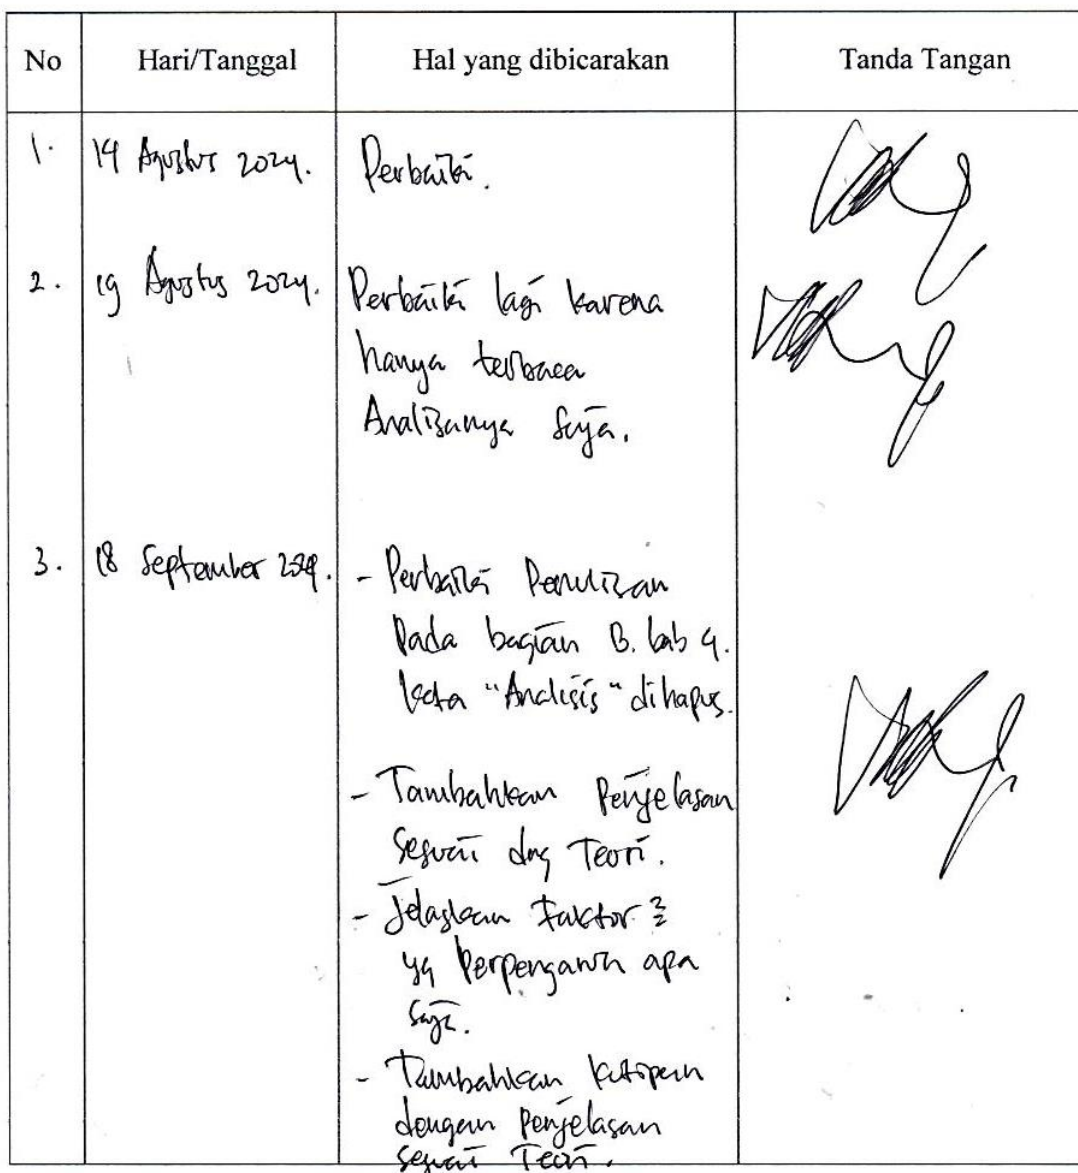 No Hari/Tanggal Hal yang dibicarakan Tanda Tangan
1. 14 Agustus 2024. Perbaiki.
2. 19 Agustus 2024. Perbaiki lagi karena
hanya terbaca
Analisanya saja.
3. 18 September 2024. - Perbaiki Penulisan
Pada bagian B. bab 4.
kata "Analisis" dihapus.
- Tambahkan Penjelasan
Sesuai dng Teori.
- Jelaskan Faktor 2
yg Perpengaruh apa
saja.
- Tambahkan kutipan
dengan Penjelasan
sesuai Teori.